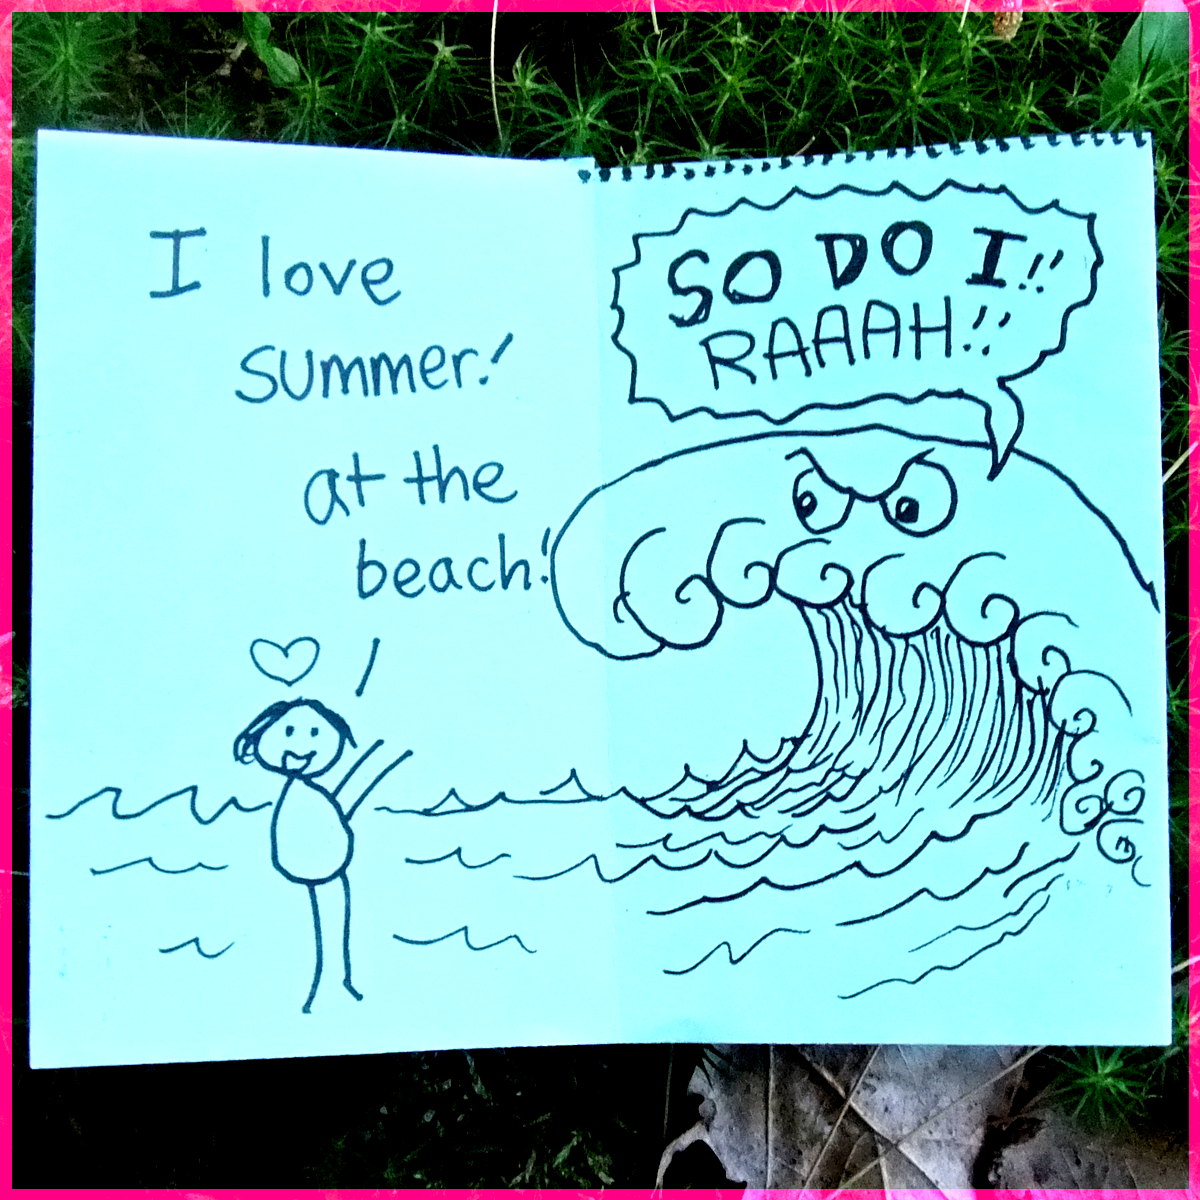 I love
summer!
at the
beach!
SO DO I!!
RAAAH!!